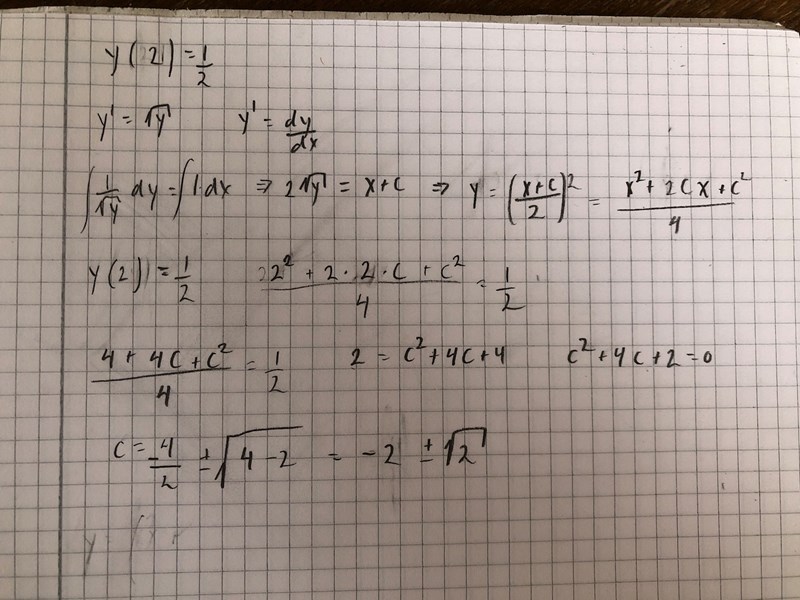 y(2) = 1/2
y' = √y y' = dy/dx
∫ 1/√y dy = ∫ 1·dx ⇒ 2√y = x+c ⇒ y = ((x+c)/2)² = (x² + 2Cx + c²)/4
y(2) = 1/2 (2² + 2·2·c + c²)/4 = 1/2
(4 + 4c + c²)/4 = 1/2 2 = c² + 4c + 4 c² + 4c + 2 = 0
c = -4/2 ± √(4-2) = -2 ± √2